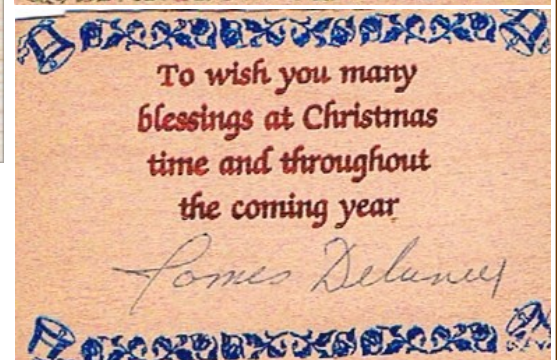 To wish you many
blessings at Christmas
time and throughout
the coming year
James Delaney